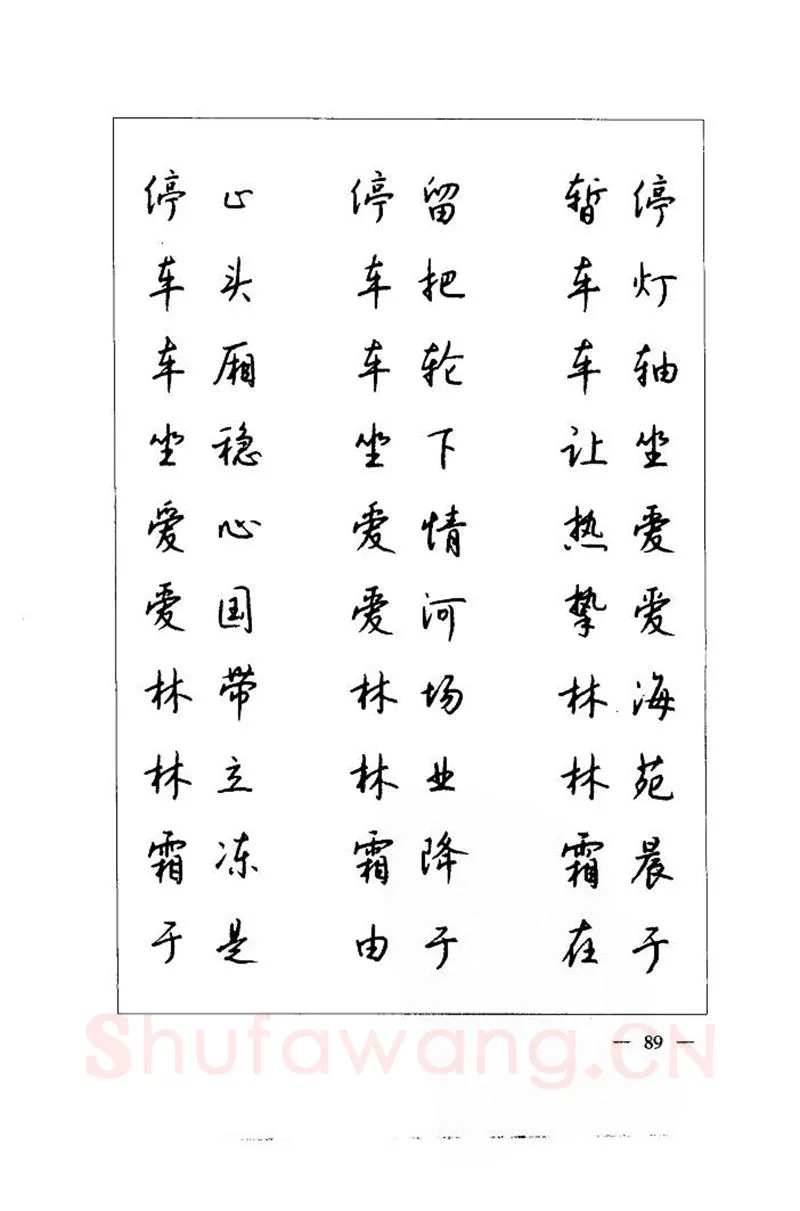 停止 停留 暂停
车头 车把 车灯
车厢 车轮 车轴
坐稳 坐下 让坐
爱心 爱情 热爱
爱国 爱河 挚爱
林带 林场 林海
林立 林业 林苑
霜冻 霜降 霜晨
于是 由于 在于
— 89 —
Shufawang.CN